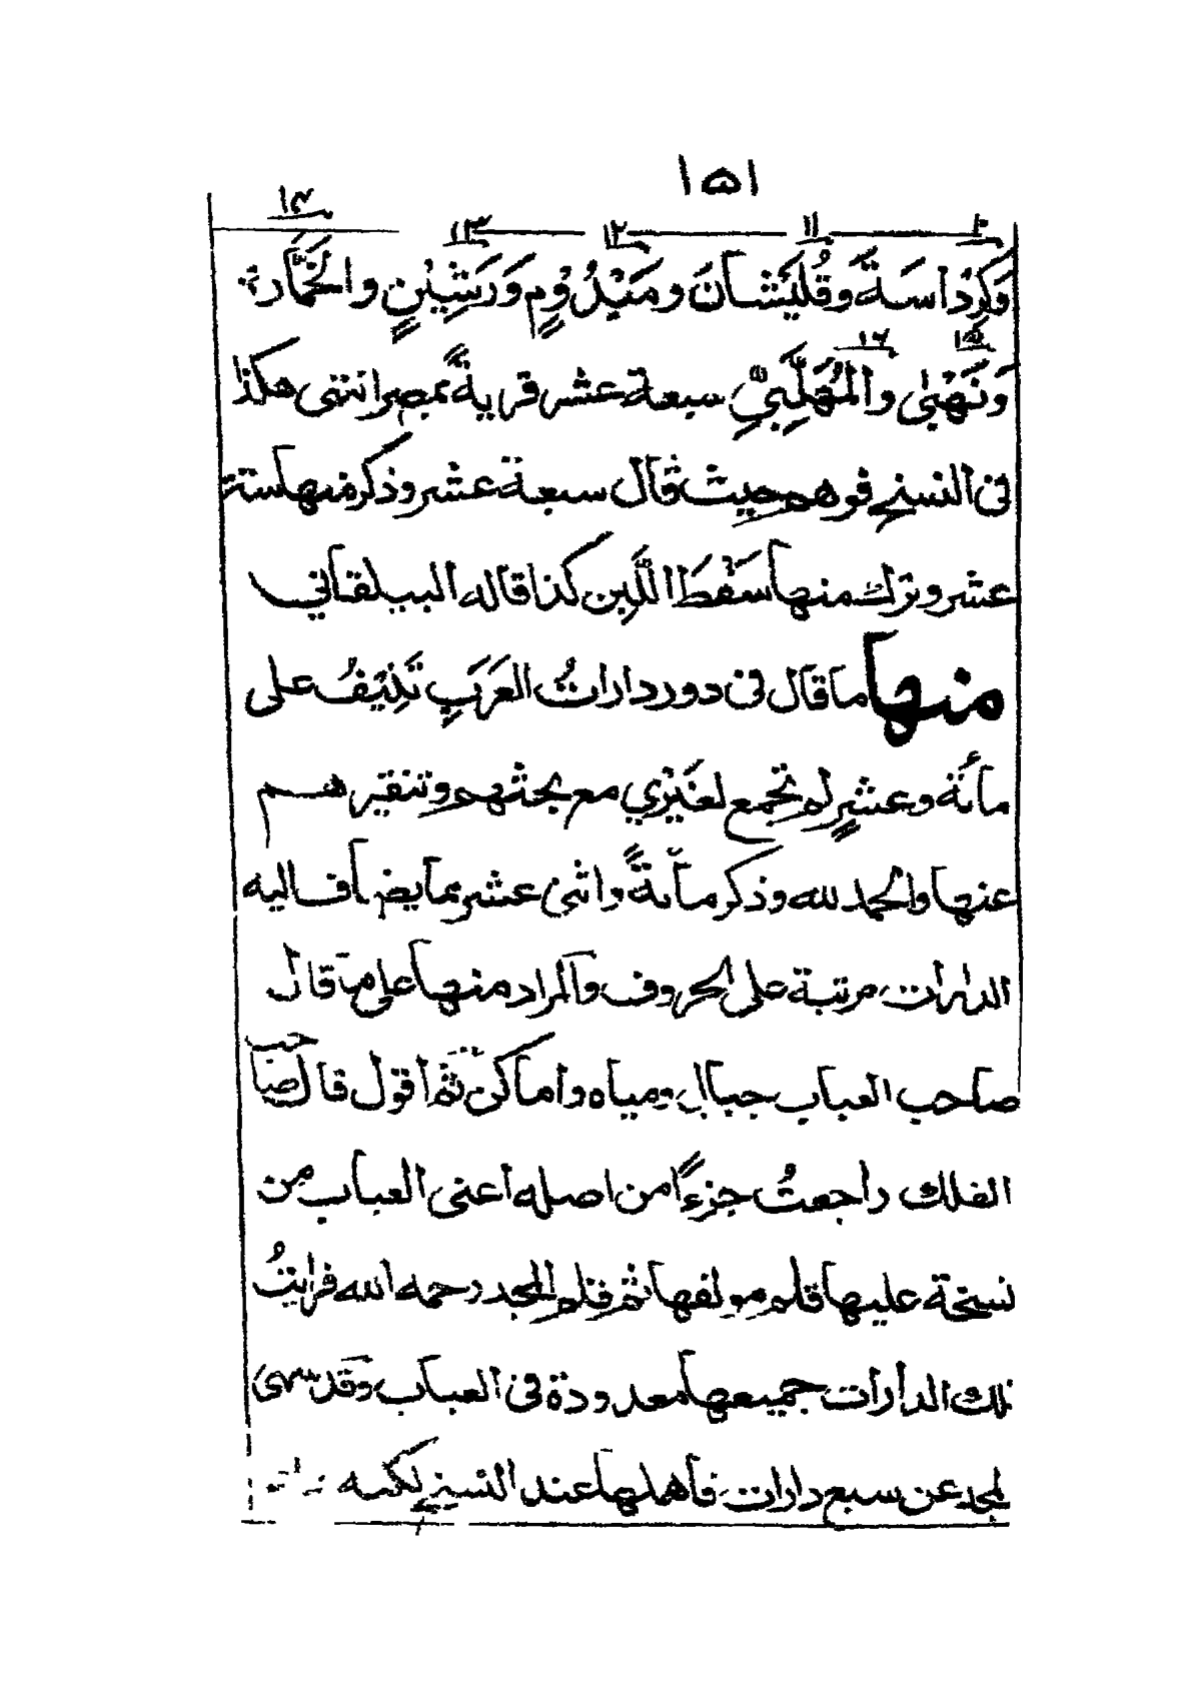 ١٥١
١٠ ١١ ١٢ ١٣ ١٤
وَكَرْدَاسَةَ وقُلَيْشَانَ ومَيْدُومٍ وَرَشِيْنٍ والحَمَّارية
١٥ ١٦
وَنَهْيٰى والمُهَلَّبِيِّ سبعة عشر قريةً بمصر انتهى هكذا
فى النسخ فوهم حيث قال سبعة عشر وذكر منها ستة
عشر وترك منها سَفَطَ اللَّبن كذا قاله البيلقاني
منها ما قال فى دور داراتُ العَرَبِ تَنِيْفُ على
مأئة وعشرٍ لم تجمع لغَيْري مع بحثهم وتنقيرهم
عنها والحمد لله وذكر مأئةً واثنى عشر بما يضاف اليه
الدارات مرتبة على الحروف والمراد منها على ما قال
صاحب العباب جبال ومياه واماكن ثم اقول قال صاحب
الفلك راجعتُ جزءًا من اصله اعنى العباب من
نسخة عليها قلم مولفها ثم قلم المجد رحمه الله فرايتُ
تلك الدارات جميعها معدودة فى العباب وقد سهى
المجد عن سبع دارات فأهملها عند النسخ لكنه